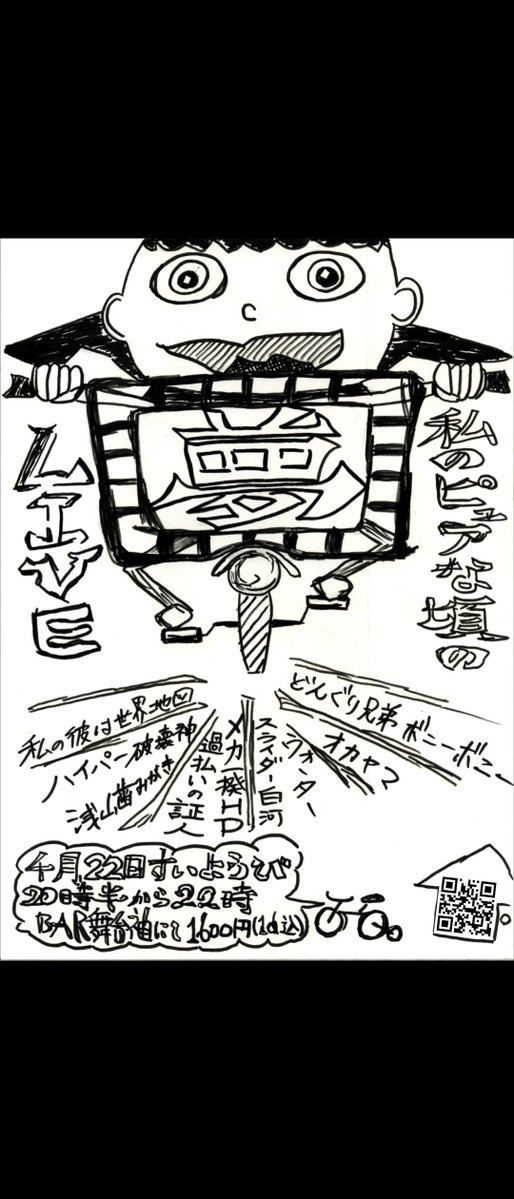 夢
私のピュアな頃の
LIVE
どんぐり兄弟 ボニーボニー
オカヤマ
ウォンター
スライダー白河
メカ一揆HP
過払いの証人
浅山歯みがき
ハイパー破壊神
私の彼は世界地図
4月22日すいようび
20時半から22時
BAR舞台袖にて 1600円(1d込)